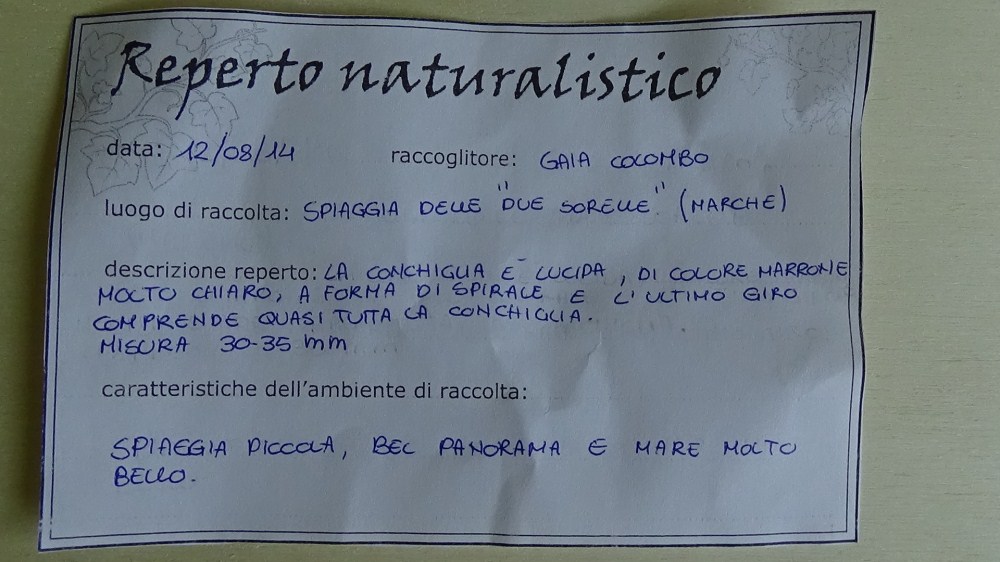 Reperto naturalistico
data: 12/08/14 raccoglitore: GAIA COLOMBO
luogo di raccolta: SPIAGGIA DELLE "DUE SORELLE" (MARCHE)
descrizione reperto: LA CONCHIGLIA E' LUCIDA, DI COLORE MARRONE
MOLTO CHIARO, A FORMA DI SPIRALE E L'ULTIMO GIRO
COMPRENDE QUASI TUTTA LA CONCHIGLIA.
MISURA 30-35 mm
caratteristiche dell'ambiente di raccolta:
SPIAGGIA PICCOLA, BEL PANORAMA E MARE MOLTO
BELLO.